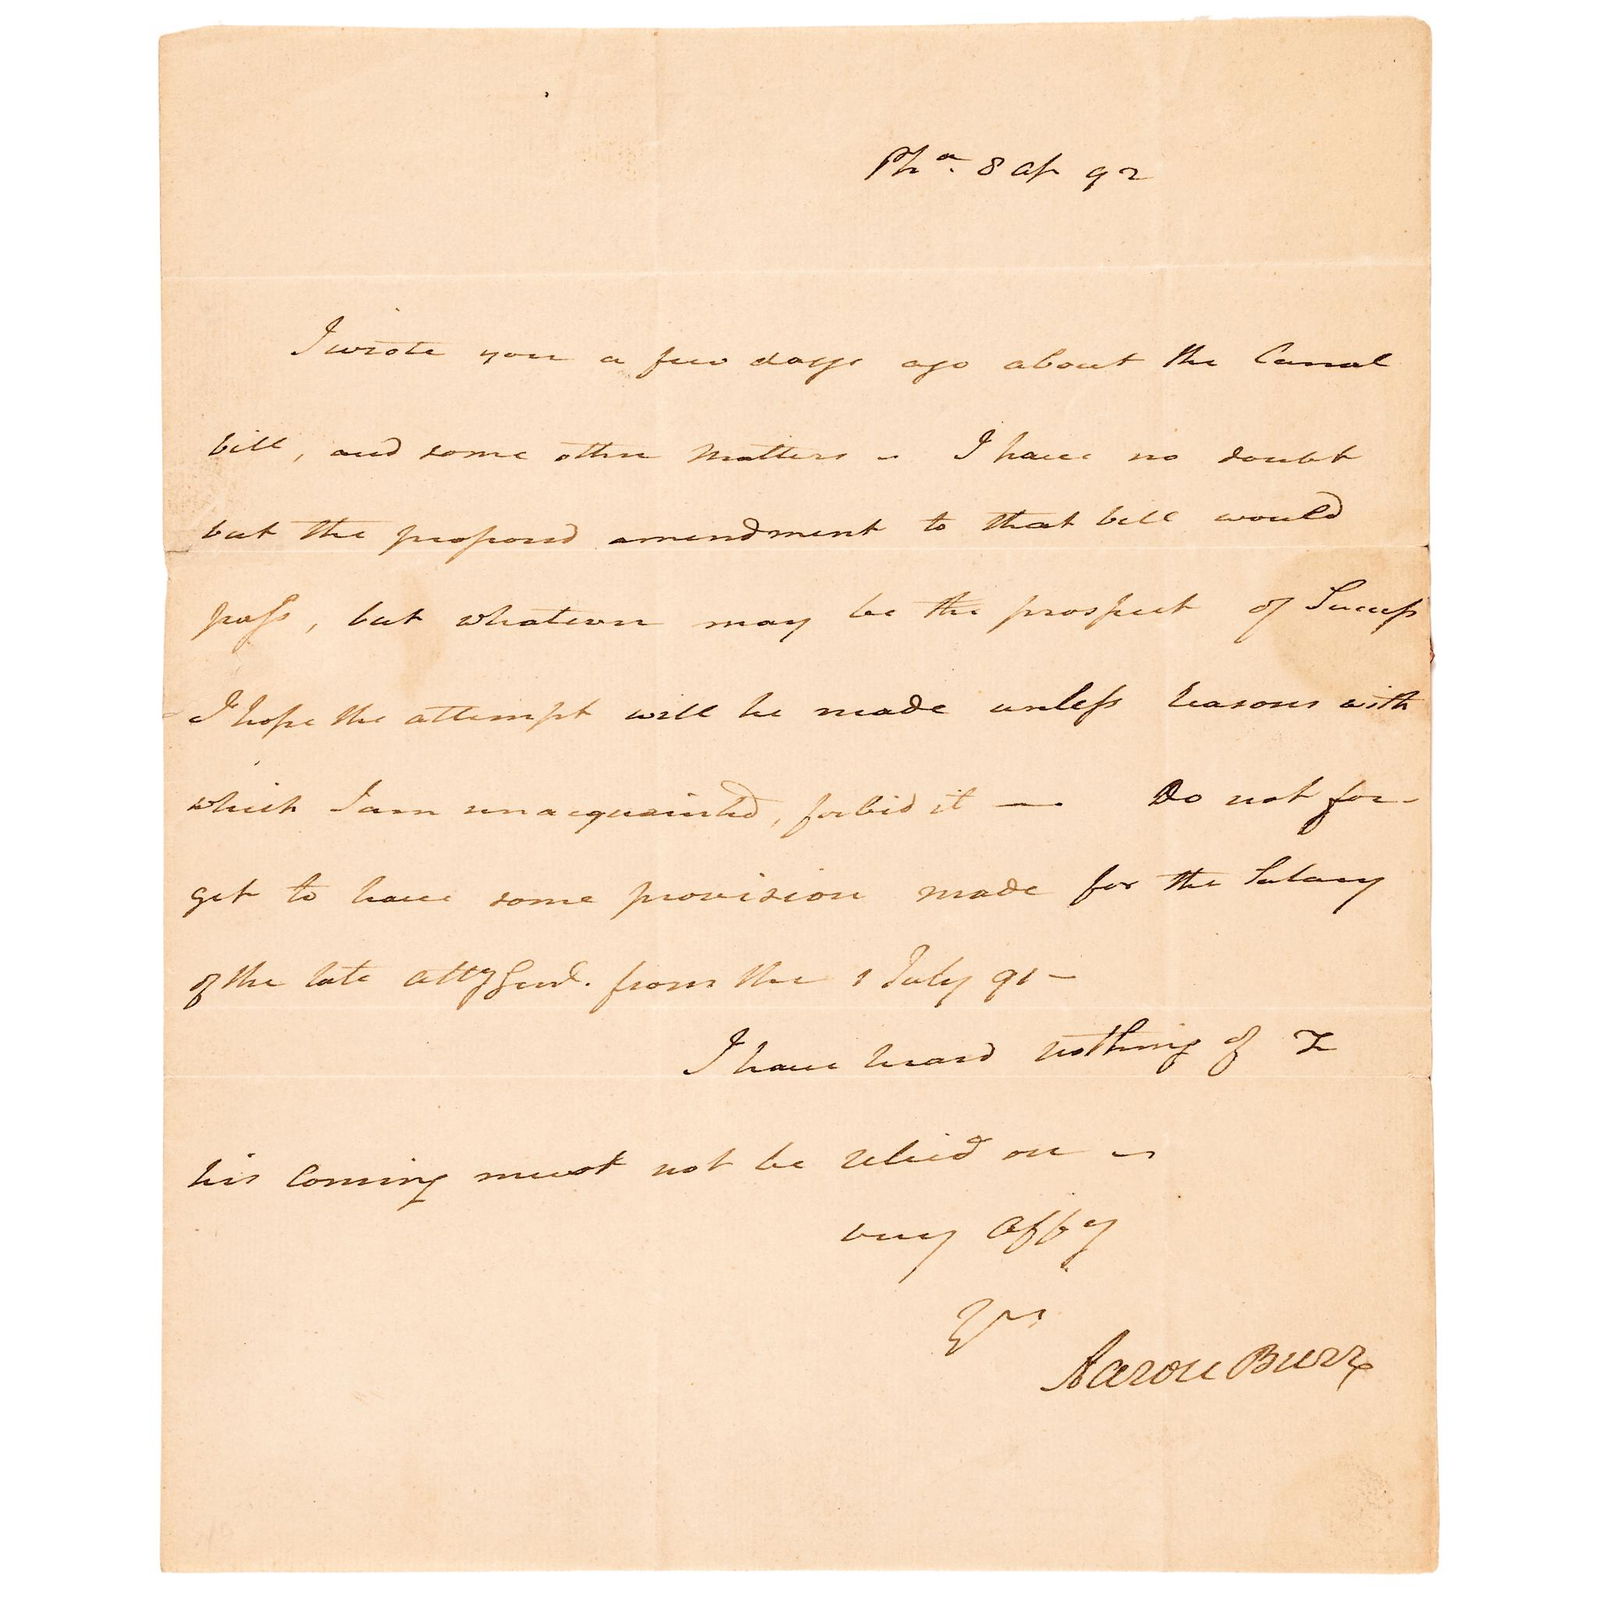 Pha. 8 Ap 92
I wrote you a few days ago about the Canal
bill, and some other matters - I have no doubt
but the proposed amendment to that bill would
pass, but whatever may be the prospect of Success
I hope the attempt will be made unless reasons with
which I am unacquainted, forbid it — Do not for-
get to have some provision made for the Salary
of the late Atty Genl. from the 1 July 91 —
I have heard nothing of I
his Coming must not be relied on -
very Affy
Yrs
Aaron Burr